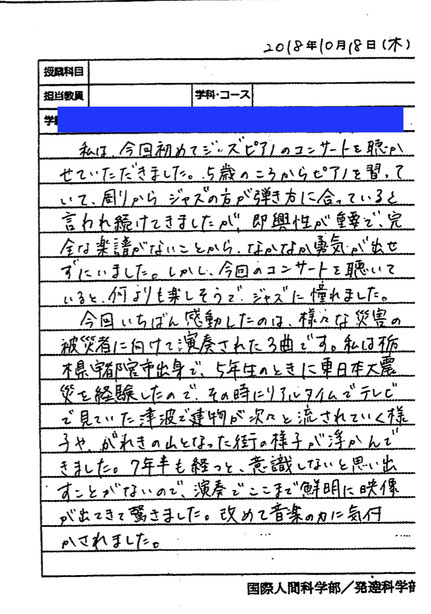 2018年10月18日(木)
授業科目
担当教員 学科・コース
学
私は、今回初めてジャズピアノのコンサートを聴か
せていただきました。5歳のころからピアノを習って
いて、周りから ジャズの方が弾き方に合っていると
言われ続けてきましたが、即興性が重要で、完
全な楽譜がないことから、なかなか勇気が出せ
ずにいました。しかし、今回のコンサートを聴いて
いると、何よりも楽しそうで、ジャズに憧れました。
今回いちばん感動したのは、様々な災害の
被災者に向けて演奏された3曲です。私は栃
木県宇都宮市出身で、5年生のときに東日本大震
災を経験したので、その時にリアルタイムでテレビ
で見ていた津波で建物が次々と流されていく様
子や、がれきの山となった街の様子が浮かんで
きました。7年半も経つと、意識しないと思い出
すことがないので、演奏でここまで鮮明に映像
が出てきて驚きました。改めて音楽の力に気付
かされました。
国際人間科学部/発達科学部